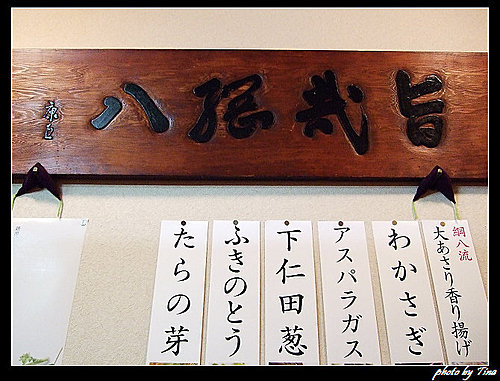 旨哉綱八
綱八流
大あさり香り揚げ
わかさぎ
アスパラガス
下仁田葱
ふきのとう
たらの芽
photo by Tina